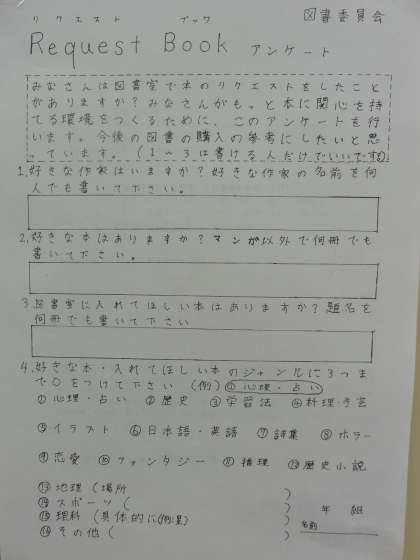 リクエスト ブック
図書委員会
Request Book アンケート
みなさんは図書室で本のリクエストをしたこと
がありますか?みなさんがもっと本に関心を持
てる環境をつくるために、このアンケートを行
います。今後の図書の購入の参考にしたいと思
っています。(1~3は書ける人だけでいいです)
1.好きな作家はいますか?好きな作家の名前を何
人でも書いて下さい。
2.好きな本はありますか?マンガ以外で何冊でも
書いて下さい。
3.図書室に入れてほしい本はありますか?題名を
何冊でも書いて下さい
4.好きな本・入れてほしい本のジャンルに3つま
で○をつけて下さい (例)①心理・占い
①心理・占い ②歴史 ③学習法 ④料理・手芸
⑤イラスト ⑥日本語・英語 ⑦詩集 ⑧ホラー
⑨恋愛 ⑩ファンタジー ⑪推理 ⑫歴史小説
⑬地理(場所 )
⑭スポーツ( )
⑮理科(具体的に(例:星) )
⑯その他( )
年 組
名前